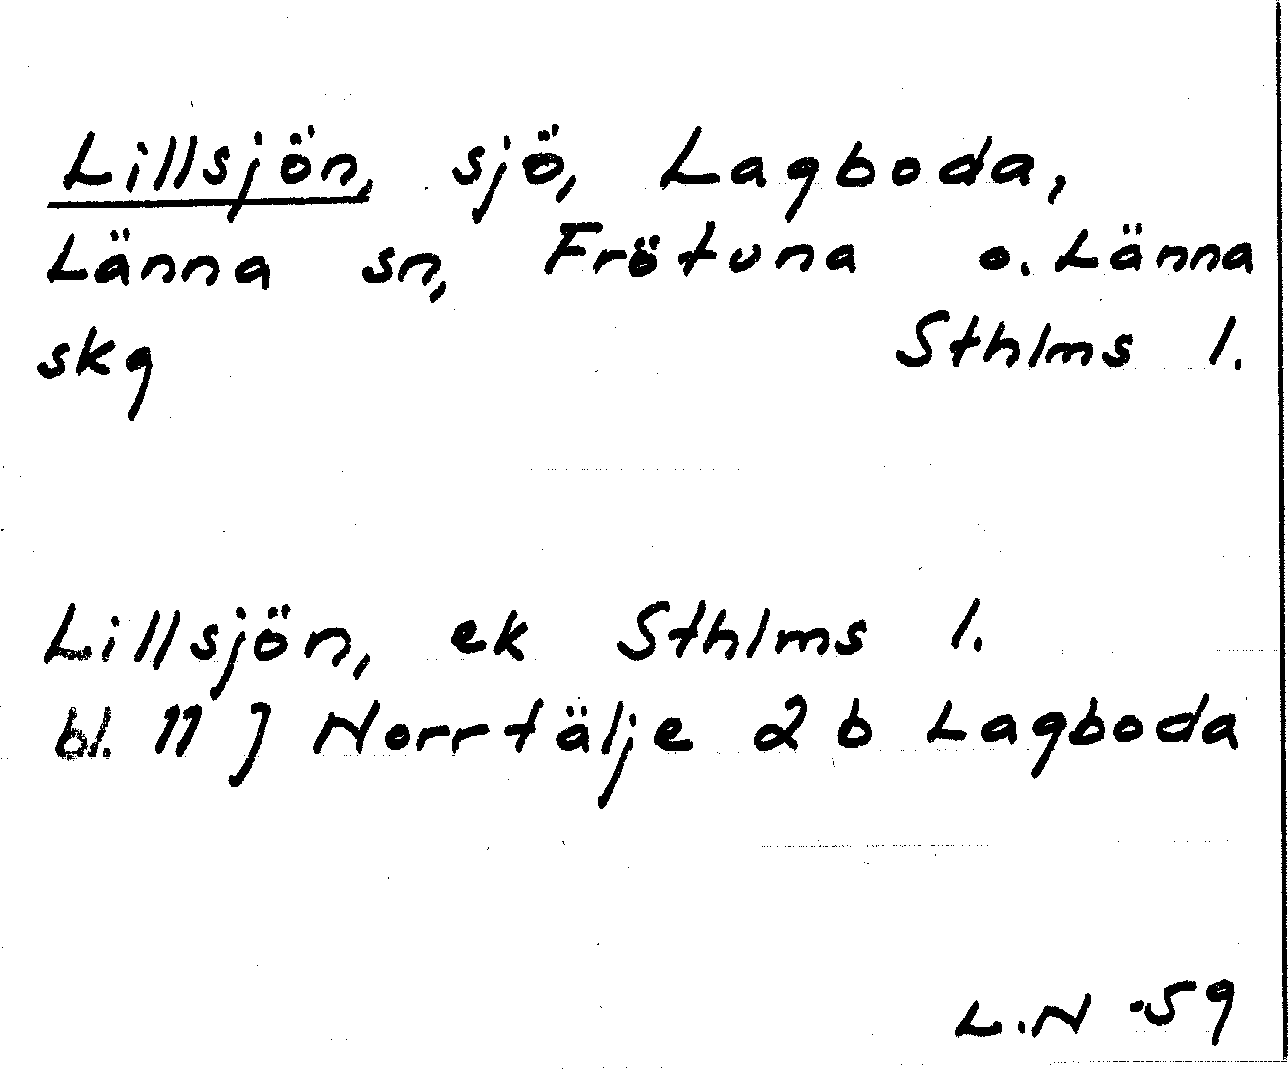 Lillsjön, sjö, Lagboda,
Länna sn, Frötuna o. Länna
skg Sthlms l.
Lillsjön, ek Sthlms l.
bl. 11 J Norrtälje 2 b Lagboda
L.N -59